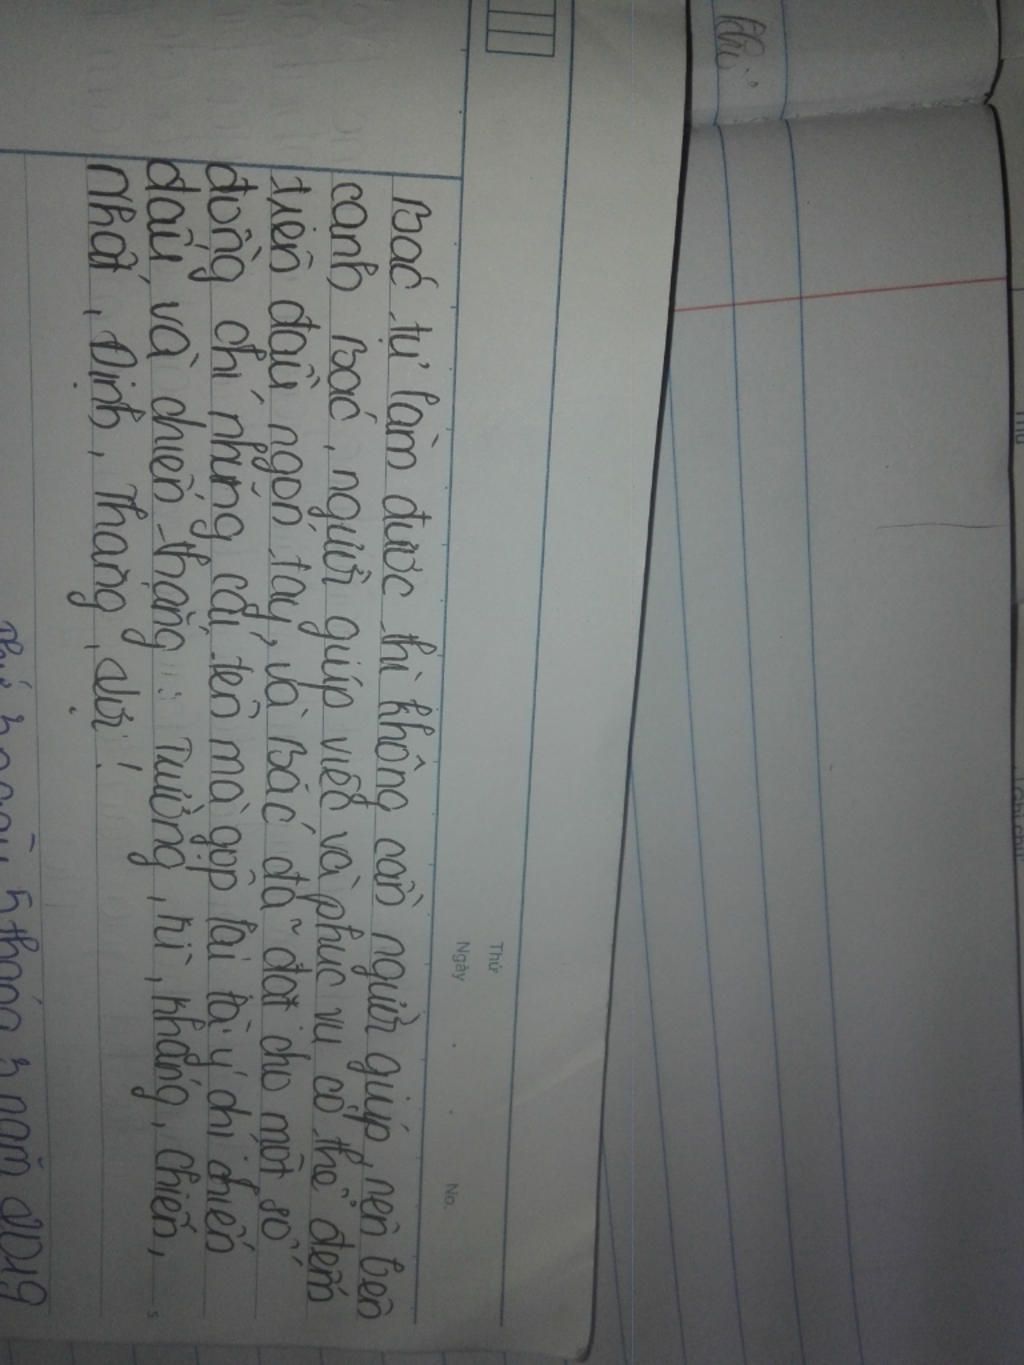 Thứ
Ngày
No.
Bác tự làm được thì không cần người giúp, nên bên
cạnh Bác, người giúp việc và phục vụ có thể đếm
trên đầu ngón tay, và Bác đã đặt cho một số
đồng chí những cái tên mà gộp lại là ý chí chiến
đấu và chiến thắng: Trường, Kì, Kháng, Chiến,
Nhất, Định, Thắng, Lợi!